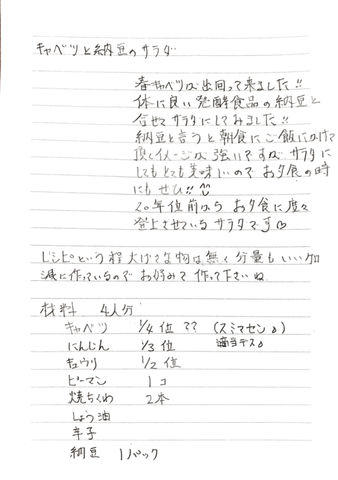 キャベツと納豆のサラダ
春キャベツが出回って来ました!!
体に良い発酵食品の納豆と
合せてサラダにしてみました!!
納豆と言うと朝食にご飯にかけて
頂くイメージが強いですがサラダに
してもとても美味しいのでお夕食の時
にもぜひ!!
20年位前からお夕食に度々
登上させているサラダです♡
レシピという程大げさな物は無く分量もいい加
減に作っているのでお好みで作って下さいね
材料 4人分
キャベツ 1/4位 ?? (スミマセン♪)
にんじん 1/3位 適当デス♪
キュウリ 1/2位
ピーマン 1コ
焼ちくわ 2本
しょう油
辛子
納豆 1パック